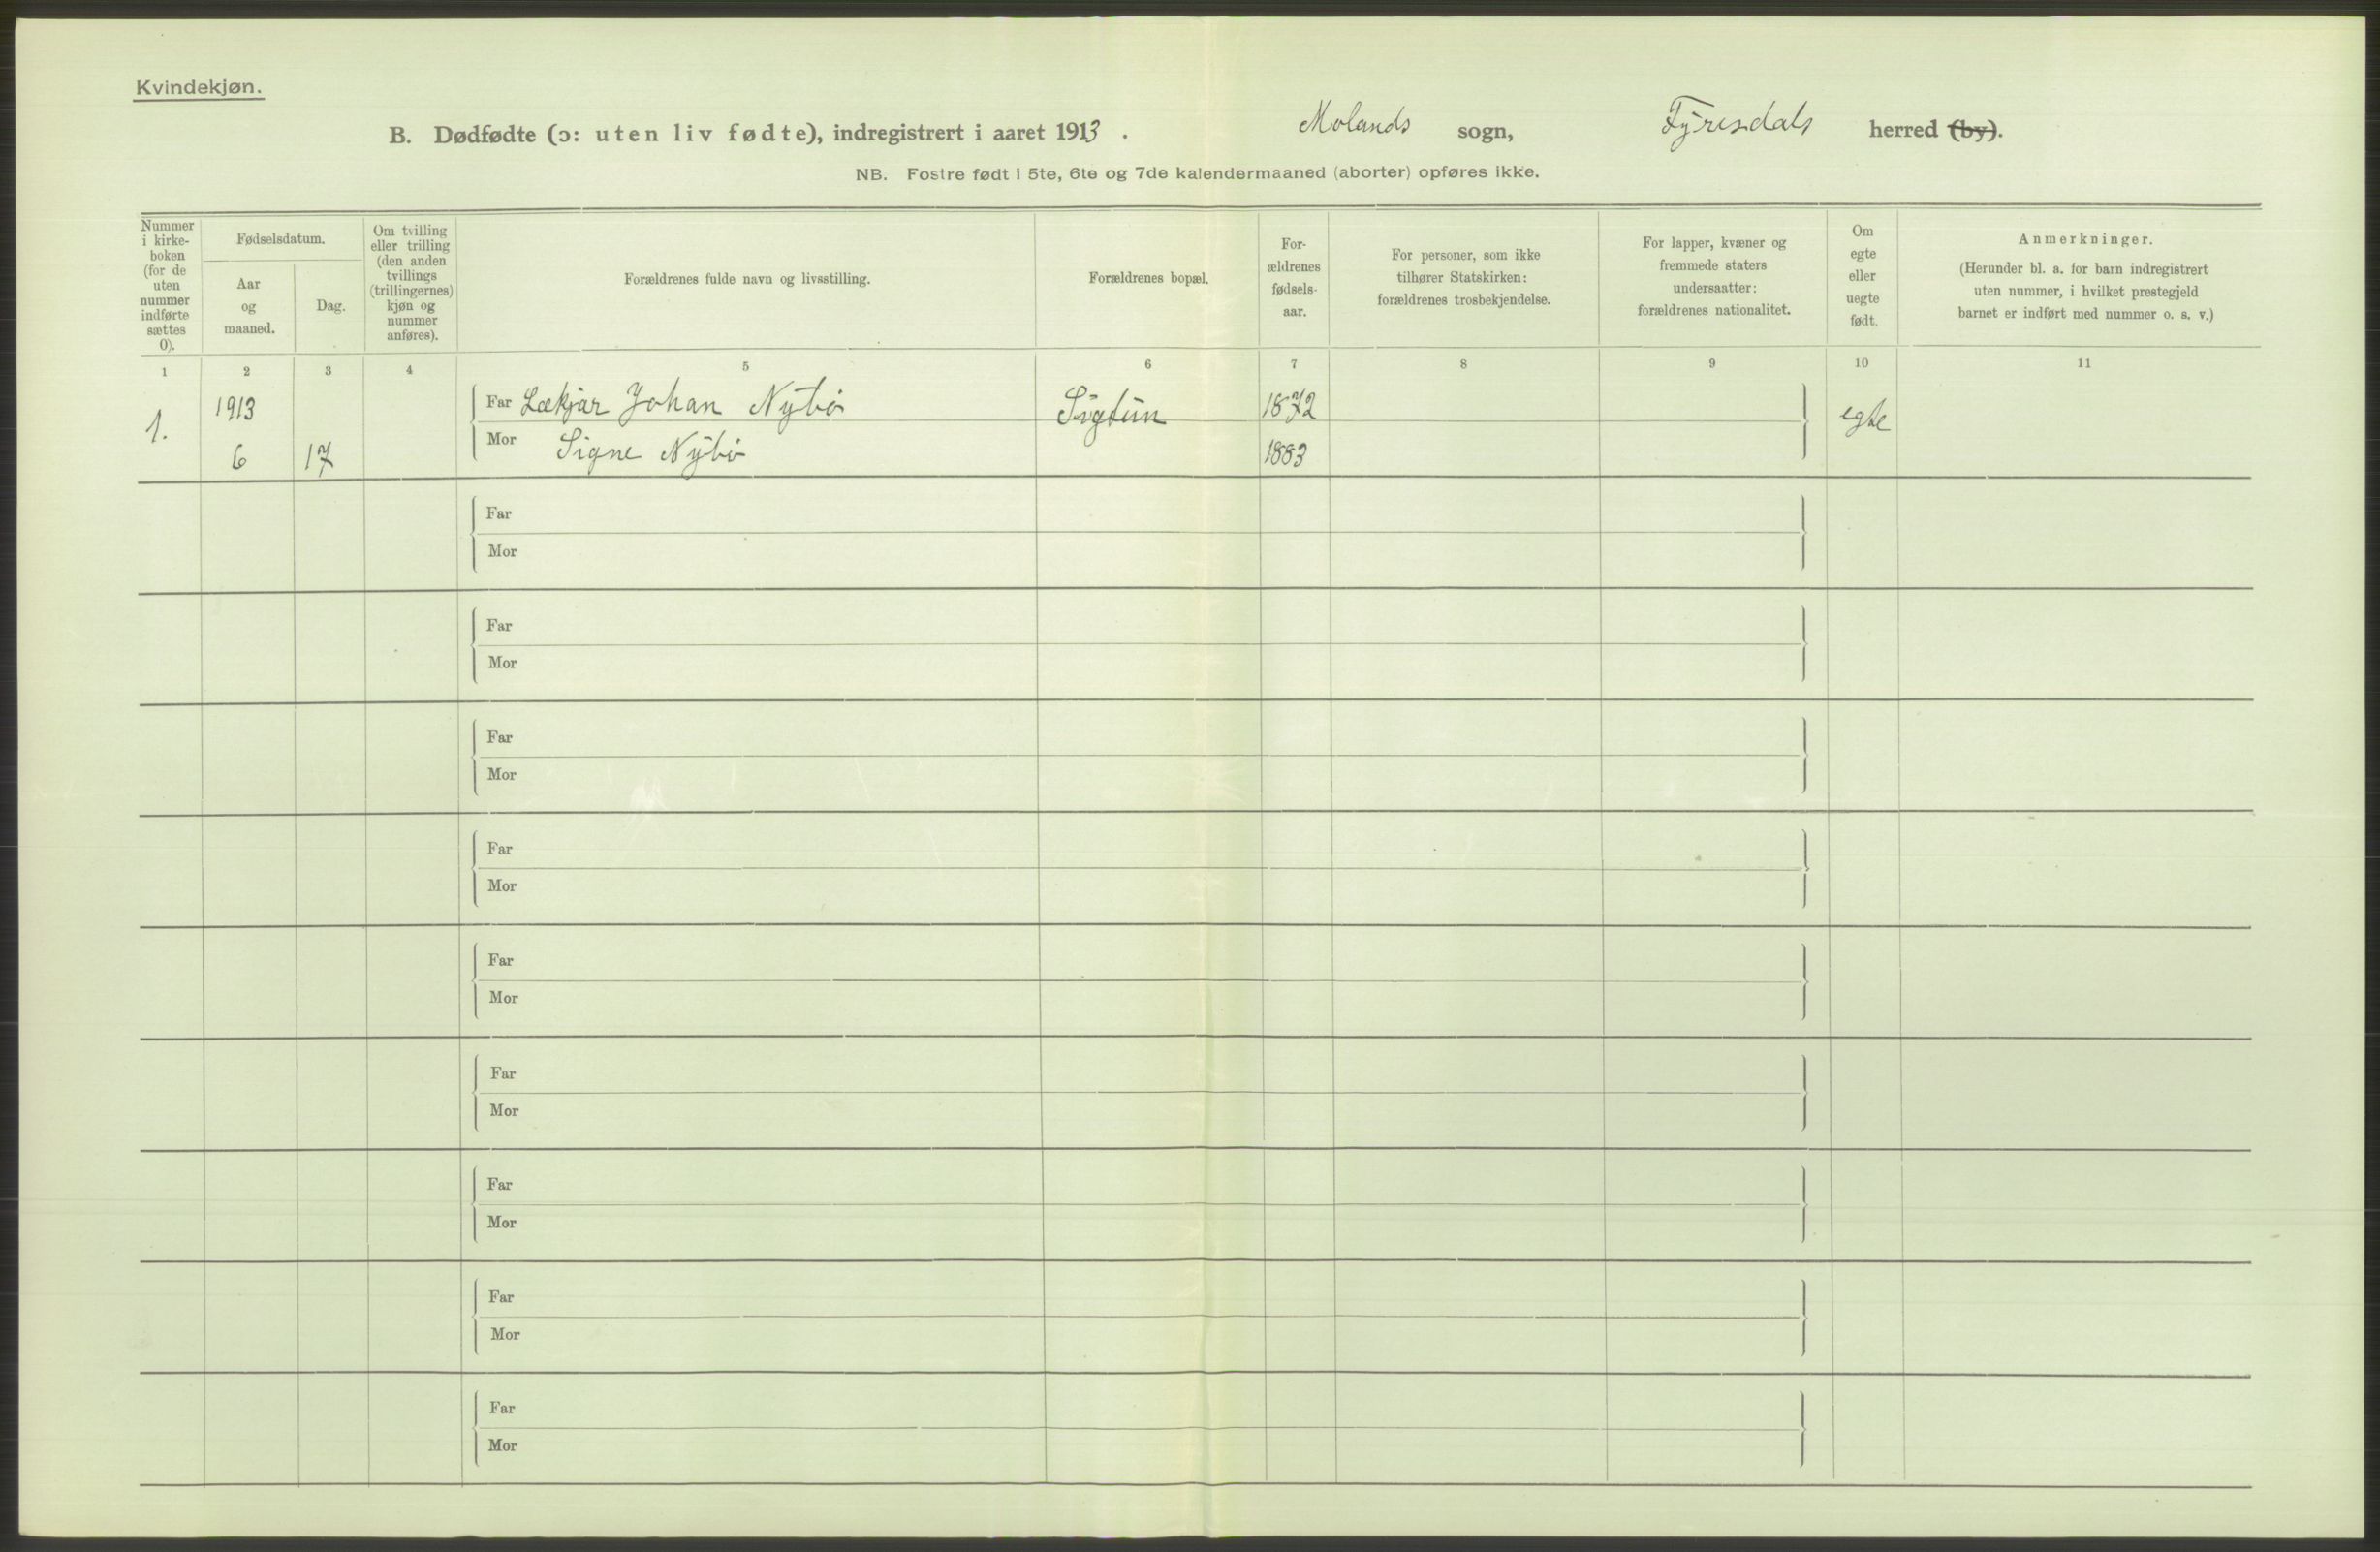 Kvindekjøn.
B. Dødfødte (ɔ: uten liv fødte), indregistrert i aaret 1913. Molands sogn, Fyresdals herred (by).
NB. Fostre født i 5te, 6te og 7de kalendermaaned (aborter) opføres ikke.
Nummer
i kirke-
boken
(for de
uten
nummer
indførte
sættes
0).
Fødselsdatum.
Aar
og
maaned.
Dag.
Om tvilling
eller trilling
(den anden
tvillings
(trillingernes)
kjøn og
nummer
anføres).
Forældrenes fulde navn og livsstilling.
Forældrenes bopæl.
For-
ældrenes
fødsels-
aar.
For personer, som ikke
tilhører Statskirken:
forældrenes trosbekjendelse.
For lapper, kvæner og
fremmede staters
undersaatter:
forældrenes nationalitet.
Om
egte
eller
uegte
født.
Anmerkninger.
(Herunder bl. a. for barn indregistrert
uten nummer, i hvilket prestegjeld
barnet er indført med nummer o. s. v.)
1 2 3 4 5 6 7 8 9 10 11
1. 1913 Far Lækjar Johan Nybø Sigtun 1872 egte
6 17 Mor Signe Nybø 1883
Far
Mor
Far
Mor
Far
Mor
Far
Mor
Far
Mor
Far
Mor
Far
Mor
Far
Mor
Far
Mor